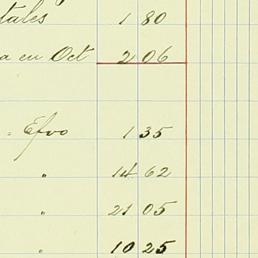 tales 1 80
a en Oct 2 06
" Efvo 1 35
" 14 62
" 21 05
" 10 25